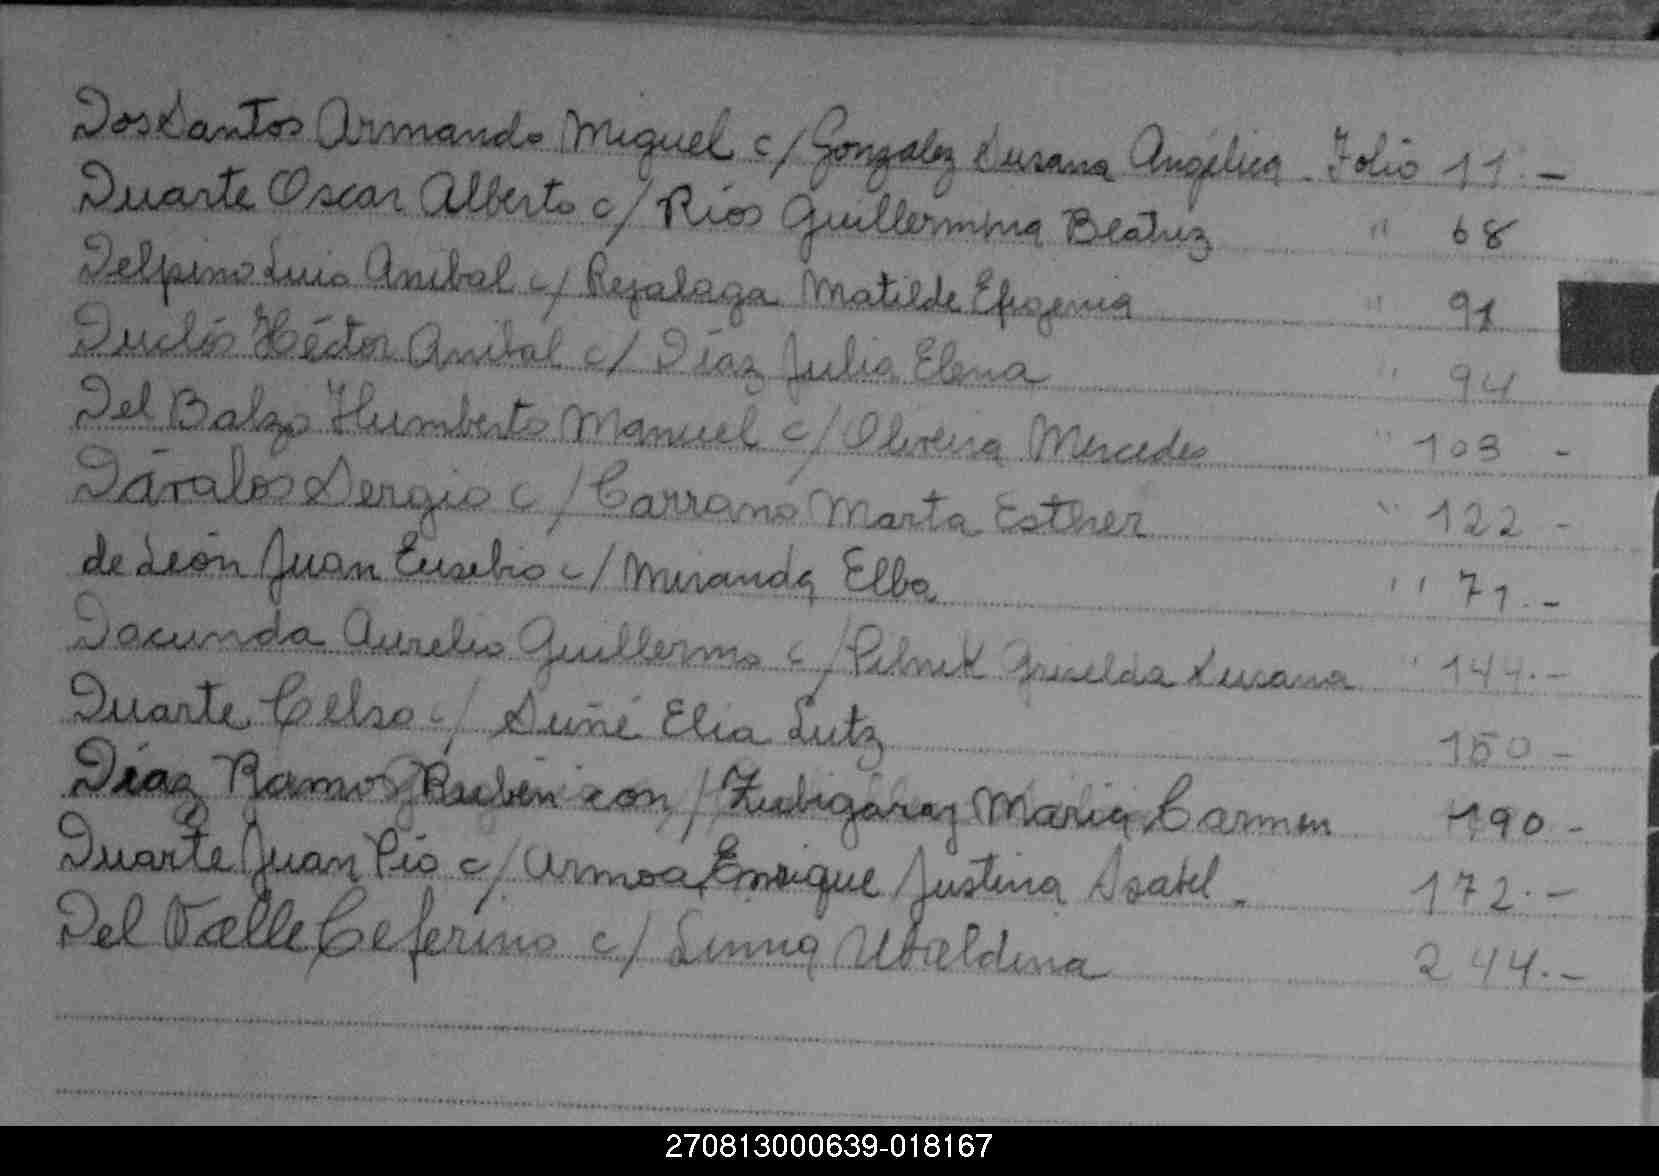 Dos Santos Armando Miguel c/ Gonzalez Susana Angélica - Folio 11.-
Duarte Oscar Alberto c/ Ríos Guillermina Beatriz " 68
Delpino Luis Anibal c/ Rejalaga Matilde Efigenia " 91
Duclós Héctor Anibal c/ Díaz Julia Elena " 94
Del Balzo Humberto Manuel c/ Oliveira Mercedes " 103 -
Dávalos Sergio c/ Carrano Marta Esther " 122 -
de León Juan Eusebio c/ Miranda Elba " 71.-
Dacunda Aurelio Guillermo c/ Pelnik Griselda Susana " 144.-
Duarte Celso c/ Suñé Elia Lutz 150 -
Díaz Ramos Rubén con / Zubigaray María Carmen 190 -
Duarte Juan Pío c/ Armoa Enrique Justina Isabel - 172.-
Del Valle Ceferino c/ Ubaldina 244.-
270813000639-018167